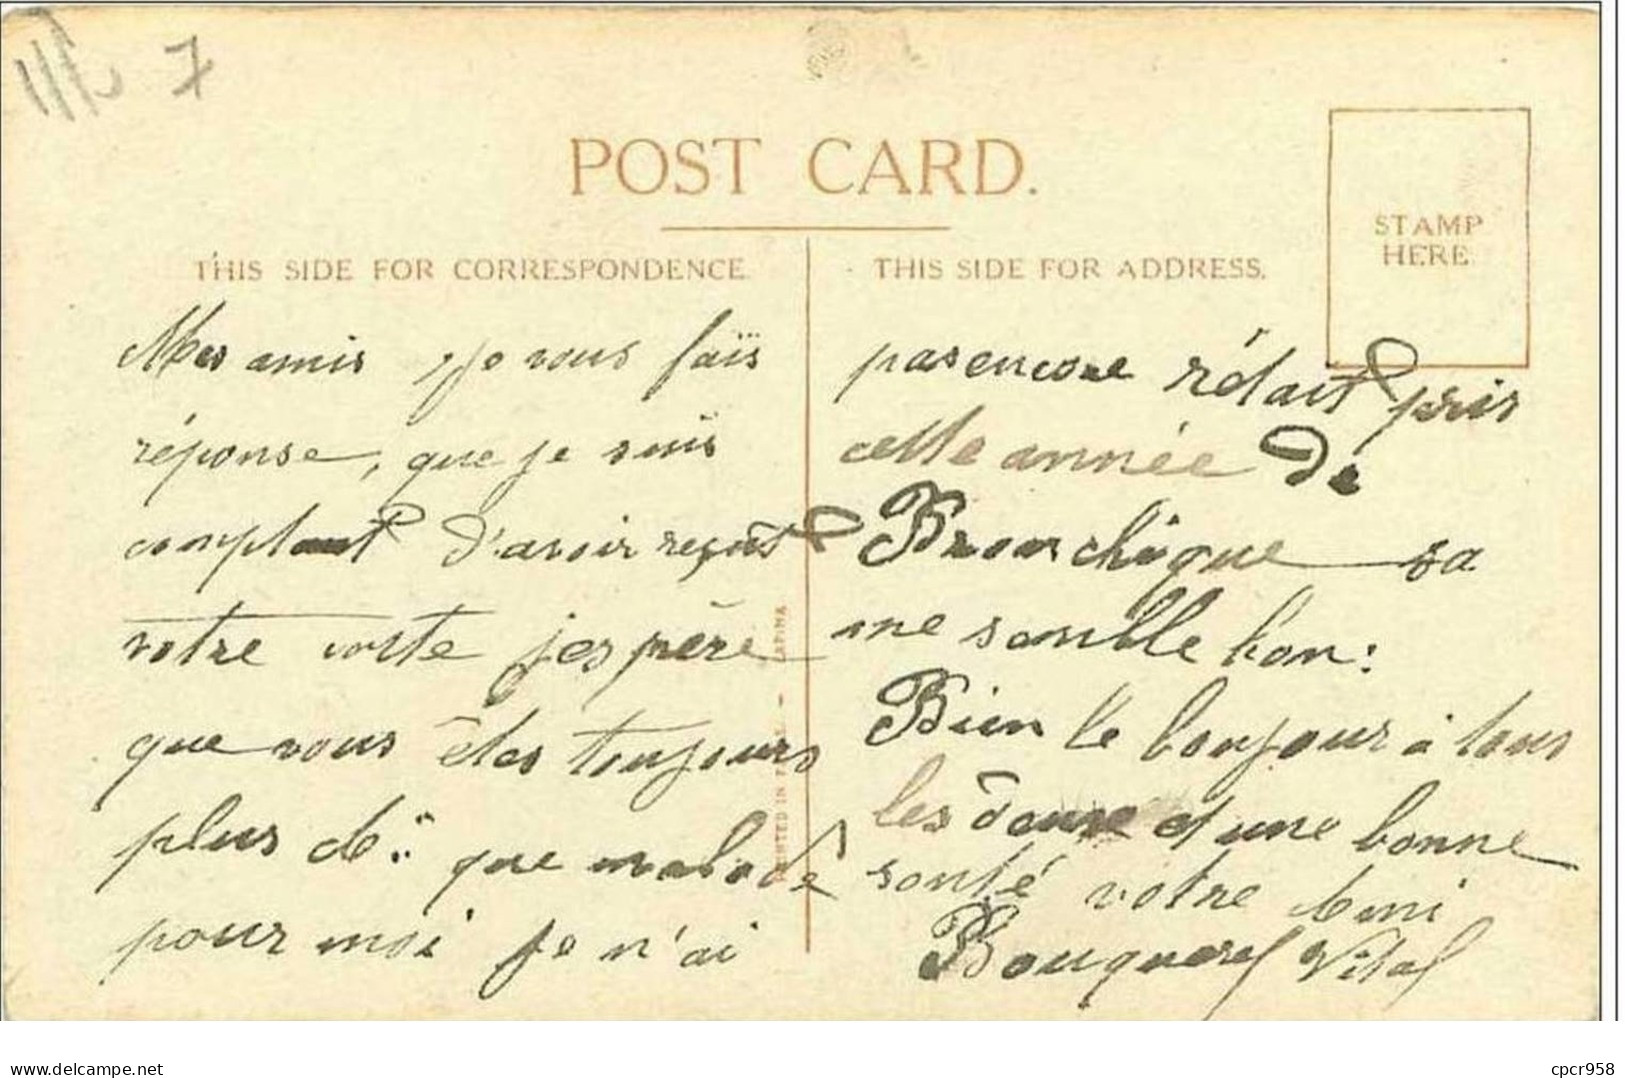 7
POST CARD.
STAMP
HERE
THIS SIDE FOR CORRESPONDENCE
THIS SIDE FOR ADDRESS.
Mes amis je vous faïs
réponse, que je suis
comptant d'avoir reçut
votre carte j'espère
que vous êtes toujours
plus que malade
pour moi je n'ai
pas encore rétait pris
cette année de
Bronchique sa
me semble bon:
Bien le bonjour à tous
les d'une bonne
santé votre ami
Bouquerel Vital
PRINTED IN
delcampe.net
cpcr958